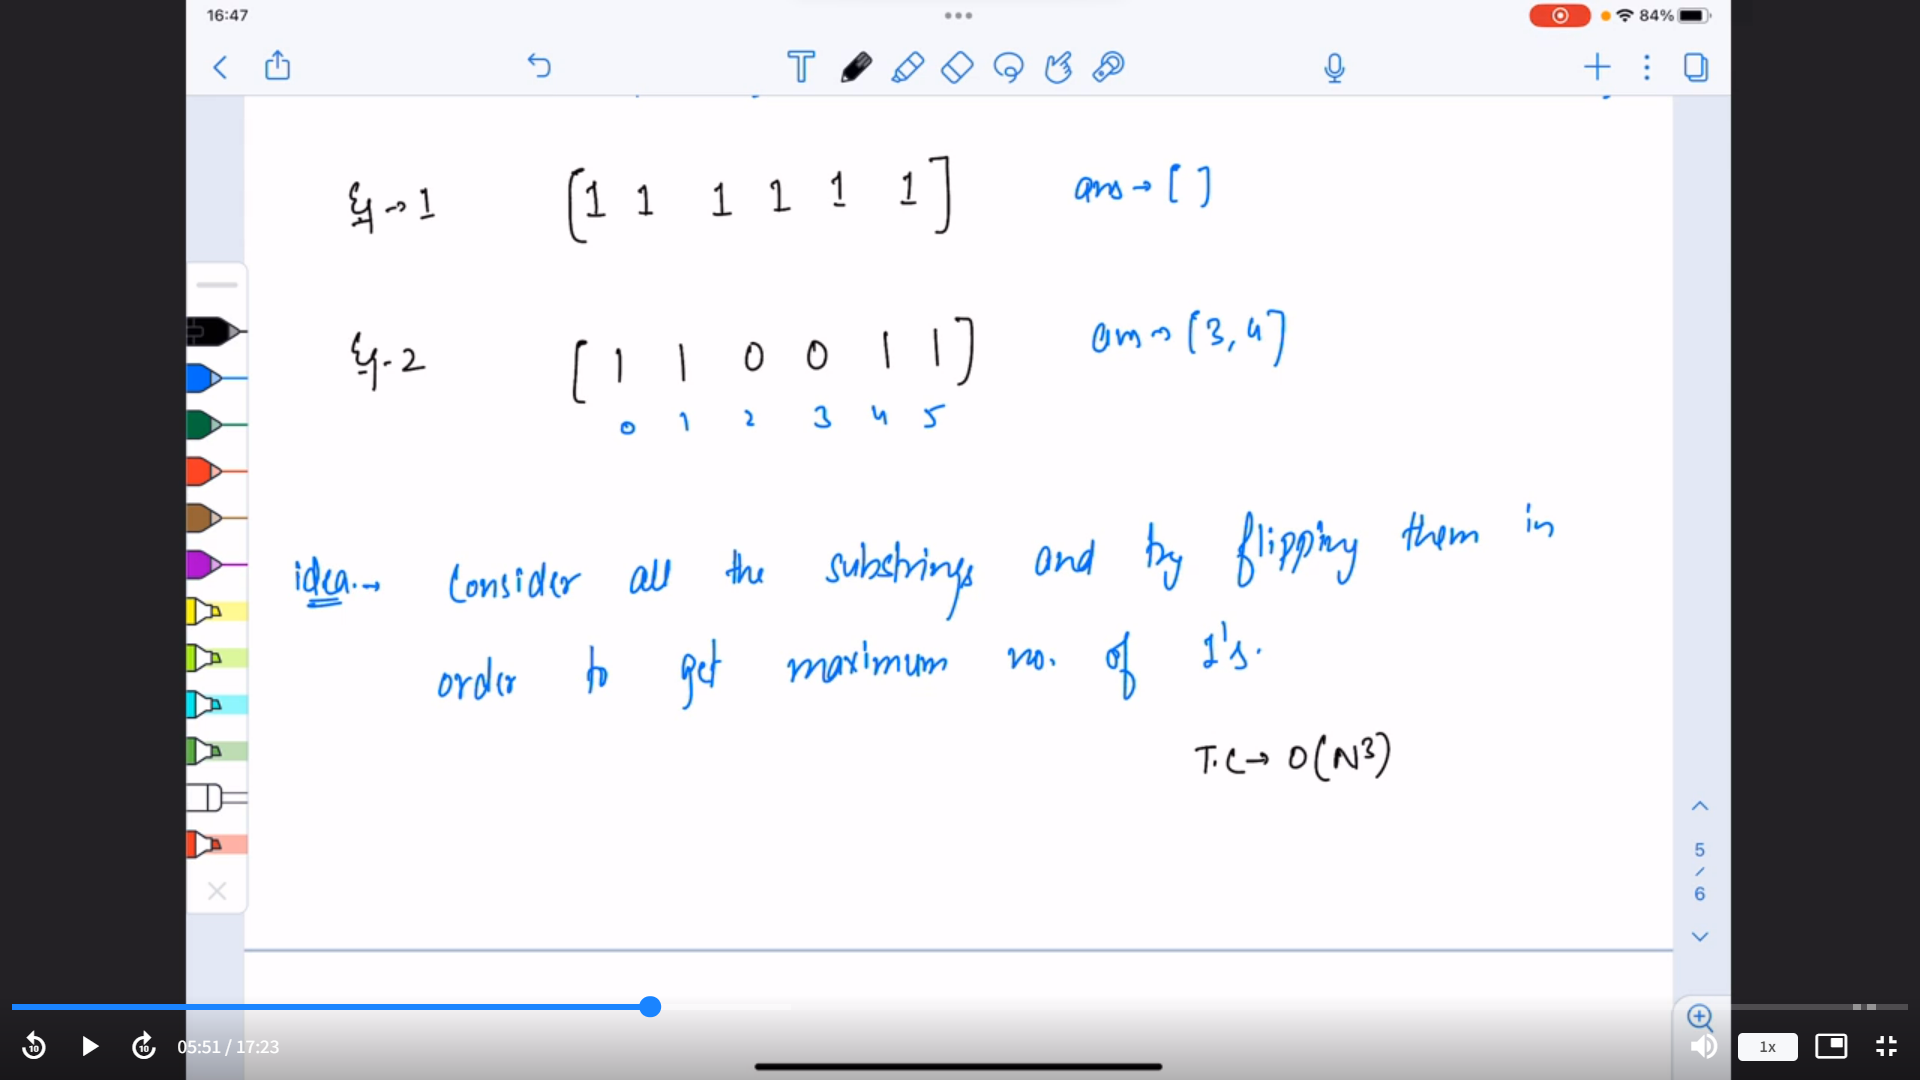 16:47
84%
Eg → 1 [1 1 1 1 1 1] ans → [ ]
Eg - 2 [1 1 0 0 1 1] ans → [3, 4]
0 1 2 3 4 5
idea → Consider all the substrings and try flipping them in
order to get maximum no. of 1's.
T.C → O(N³)
5
/
6
10
10
05:51 / 17:23
1x